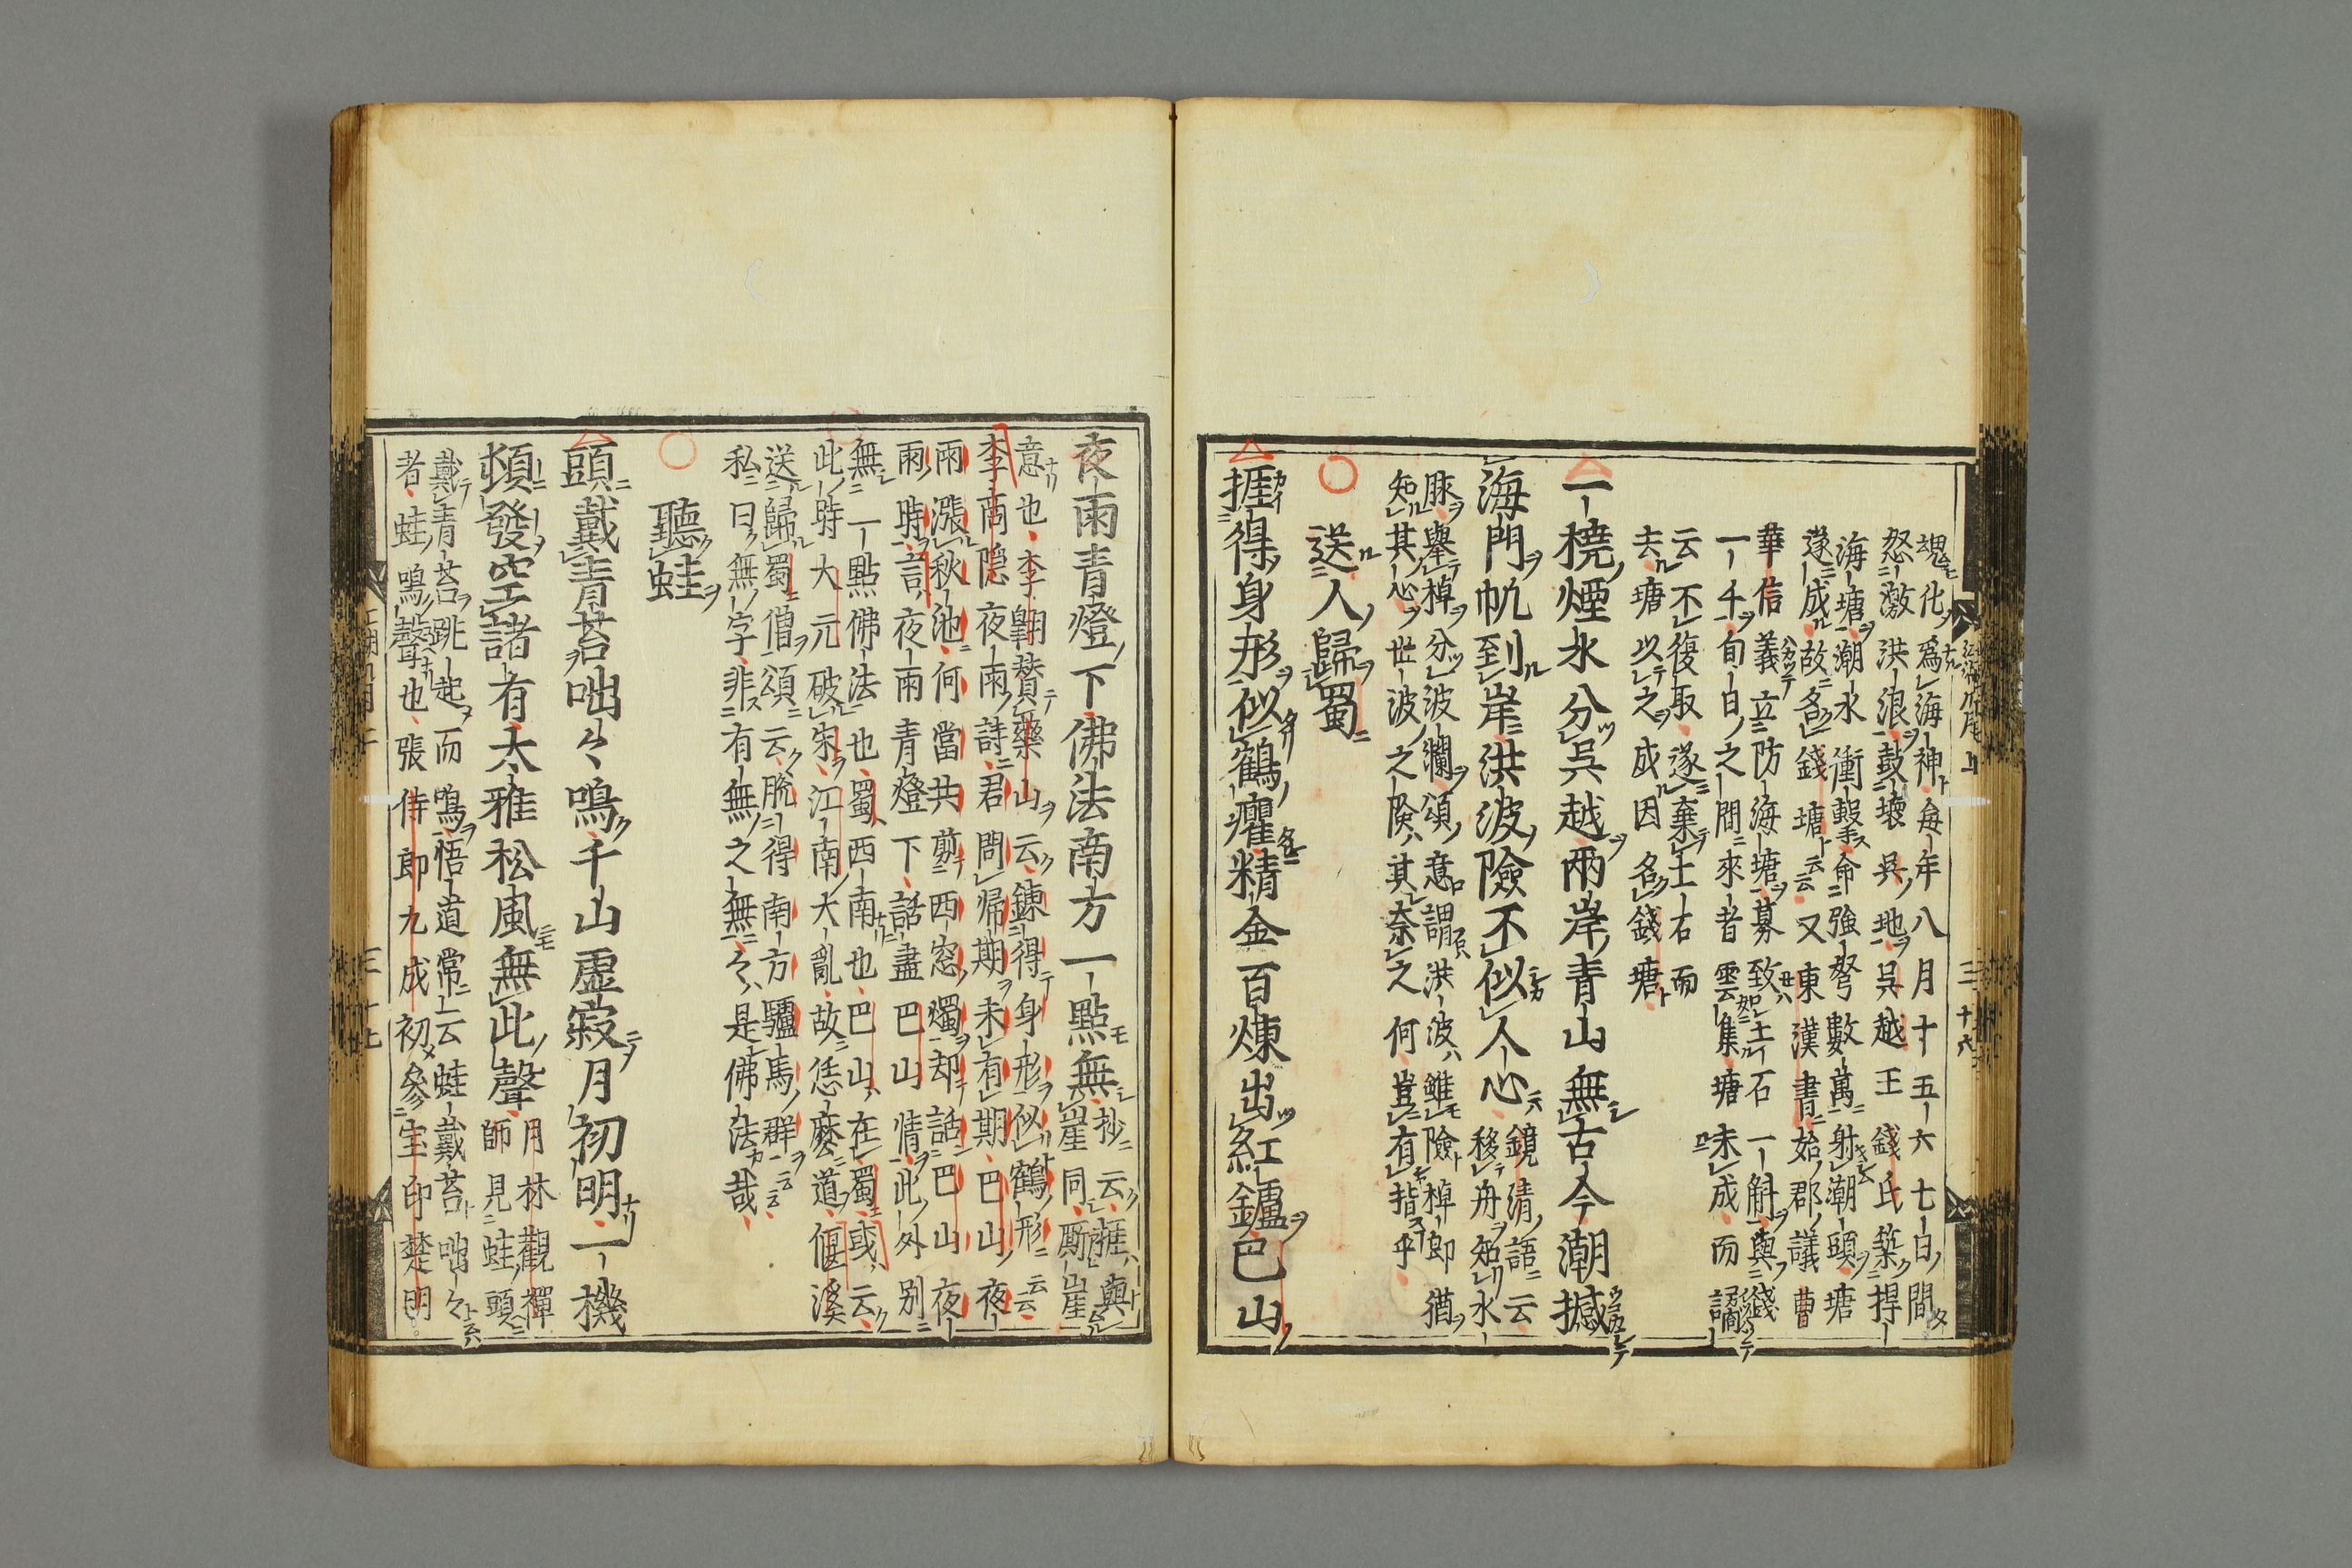 魂化爲海神毎年八月十五六七日間
怒激洪浪鼓壊呉地呉越王錢氏築捍
海塘潮水衝擊命強弩數萬射潮頭塘
遂成故名錢塘云云又東漢書始郡議曹
華信義立防海塘募致土石一斛與錢
一千旬日之間來者雲集塘未成而譎
云不復取遂棄土石而
去塘以之成因名錢塘
一橈煙水分呉越兩岸青山無古今潮撼
海門帆到岸洪波險不似人心
鏡清語云
移舟知水
脉舉棹分波瀾頌意謂洪波雖險棹即猶
知其心世波之険其奈之何豈有指乎
送人歸蜀
捱得身形似鶴癯精金百煉出紅鑪巴山
夜雨青燈下佛法南方一點無
抄云捱與
崖同厮崖
意也李翺賛藥山云錬得身形似鶴形云云
李商隠夜雨詩君問帰期未有期巴山夜
雨漲秋池何當共剪西窓燭却話巴山夜
雨時言夜雨青燈下話盡巴山情此外別
無一點佛法也蜀西南也巴山在蜀或云
此時大元破宋江南大亂故恁麼道偃溪
送歸蜀僧頌云脱得南方驢馬群云云
私曰無字非有無之無々是佛法哉
聽蛙
頭戴青苔咄々鳴千山虚寂月初明一機
頻發空諸有大雅松風無此聲
月林觀禪
師見蛙頭
戴青苔跳起而鳴悟道常云蛙戴苔咄々
者蛙鳴聲也張侍郎九成初參宝印楚明